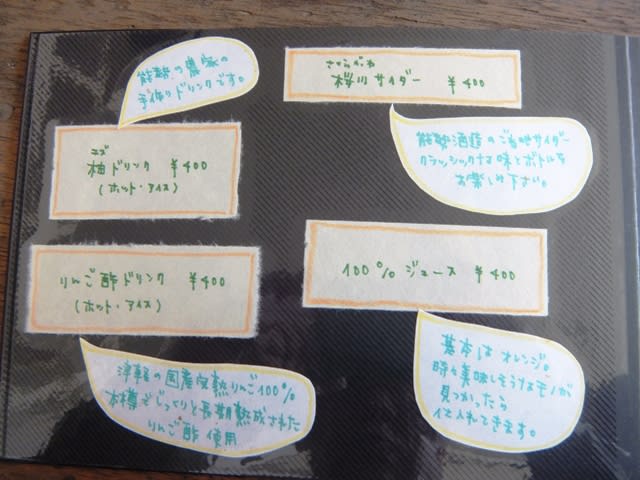 能勢の農家の
手作りドリンクです。
ユズ
柚ドリンク ￥400
(ホット・アイス)
りんご酢ドリンク ￥400
(ホット・アイス)
津軽の国産完熟りんご100%
木樽でじっくりと長期熟成された
りんご酢使用
さくらがわ
桜川サイダー ￥400
能勢酒造のご当地サイダー
クラッシックな味とボトルを
お楽しみ下さい。
100% ジュース ￥400
基本は オレンジ。
時々美味しそうなモノが
見つかったら
仕入れてきます。